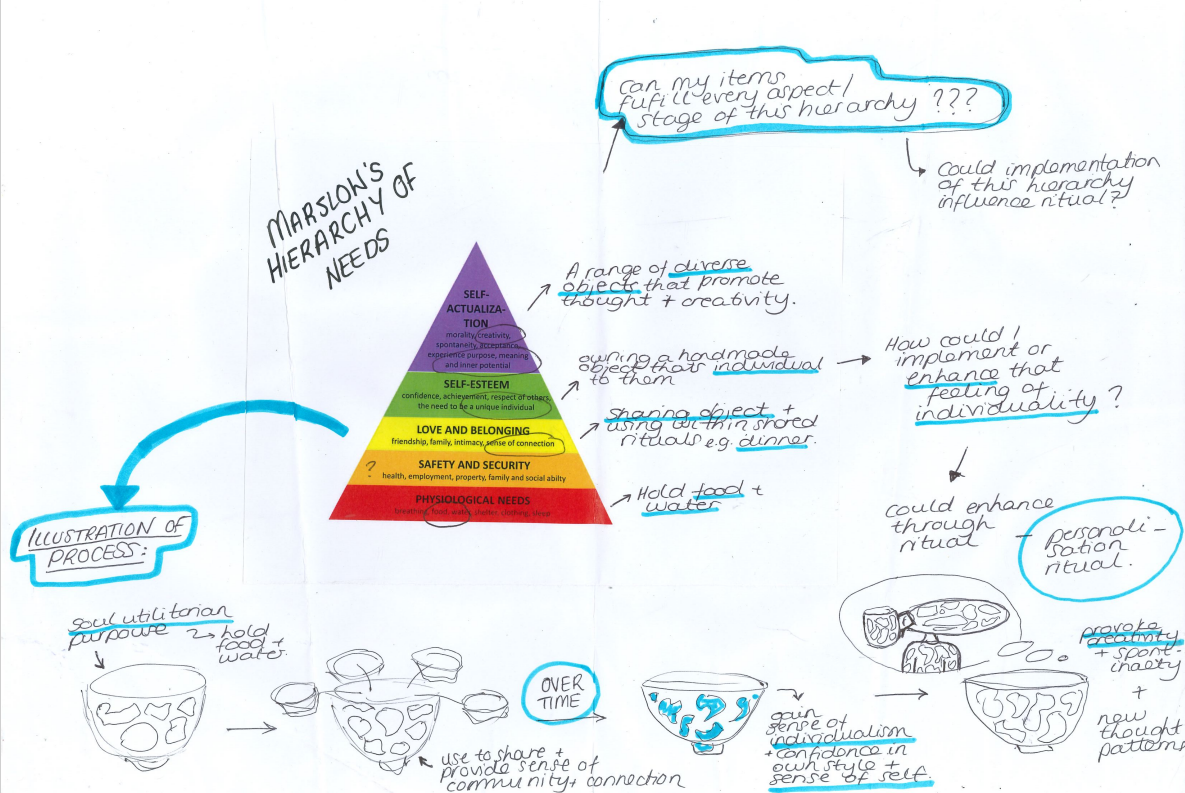 can my items
fufill every aspect/
stage of this hierarchy ???
Could implementation
of this hierarchy
influence ritual?
MARSLOW'S
HIERARCHY OF
NEEDS
SELF-
ACTUALIZA-
TION
morality, creativity,
spontaneity, acceptance,
experience purpose, meaning
and inner potential
SELF-ESTEEM
confidence, achievement, respect of others,
the need to be a unique individual
LOVE AND BELONGING
friendship, family, intimacy, sense of connection
?
SAFETY AND SECURITY
health, employment, property, family and social abilty
PHYSIOLOGICAL NEEDS
breathing, food, water, shelter, clothing, sleep
A range of diverse
objects that promote
thought + creativity.
owning a handmade
object thats individual
to them
sharing object +
using within shared
rituals e.g. dinner.
Hold food +
water
How could I
implement or
enhance that
feeling of
individuality ?
could enhance
through
ritual
personali-
sation
ritual.
ILLUSTRATION OF
PROCESS:
soul utilitarian
purpouse
hold
food +
water.
use to share +
provide sense of
community + connection
OVER
TIME
gain
sense of
individualism
+ confidence in
own style +
sense of self.
provoke
creativity
+ spont-
inaety
+
new
thought
patterns